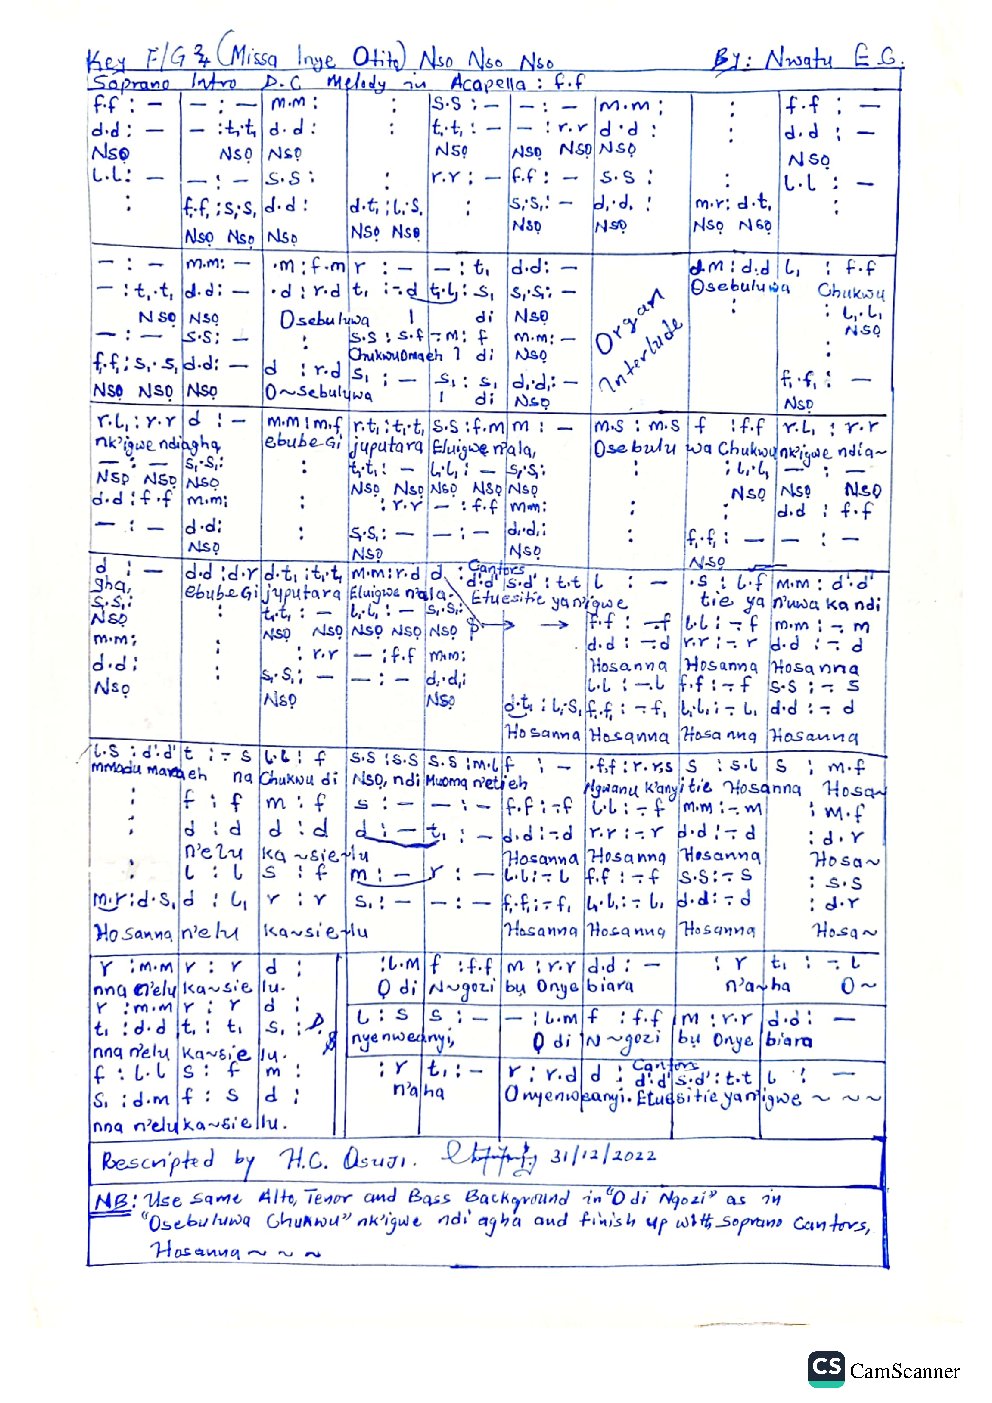 Key F/G 2/4 (Missa Inye Otito) Nso Nso Nso By: Nwatu E.G.
Soprano Intro D.C Melody in Acapella : f.f
f.f : — | — : — | m.m : | : | s.s : — | — : — | m.m : | : | f.f : —
d.d : — | — : t₁.t₁ | d.d : | : | t₁.t₁ : — | — : r.r | d.d : | : | d.d : —
Nsọ Nsọ Nsọ Nsọ Nsọ Nsọ Nsọ Nsọ
l.l : — | — : — | s.s : | : | r.r : — | f.f : — | s.s : | : | l.l : —
: | f₁.f₁ : s₁.s₁ | d.d : | d.t₁ : l₁.s₁ | : | s₁.s₁ : — | d₁.d₁ : | m.r : d.t₁ | :
Nsọ Nsọ Nsọ Nsọ Nsọ Nsọ Nsọ Nsọ Nsọ
— : — | m.m : — | .m : f.m | r : — | — : t₁ | d.d : — | d.m : d.d | l₁ : f.f
— : t₁.t₁ | d.d : — | .d : r.d | t₁ : -.d | t₁.l₁ : s₁ | s₁.s₁ : — | Osebuluwa Chukwu
Nsọ Nsọ Osebuluwa I di Nsọ Organ Interlude : : l₁.l₁
— : — | s.s : — | : | s.s : s.f | -.m : f | m.m : — | Nsọ
Chukwuomaeh I di Nsọ
f.f : s₁.s₁ | d.d : — | d : r.d | s₁ : — | s₁ : s₁ | d₁.d₁ : — | f₁.f₁ : —
Nsọ Nsọ Nsọ O~sebuluwa I di Nsọ Nsọ
r.l₁ : r.r | d : — | m.m : m.f | r.t₁ : t₁.t₁ | s.s : f.m | m : — | m.s : m.s | f : f.f | r.l₁ : r.r
nk'igwe ndiagha ebube Gi juputara Eluigwe n'ala, Osebulu wa Chukwu nk'igwe ndia~
— : — | s₁.s₁ : | : | t₁.t₁ : — | l₁.l₁ : — | s₁.s₁ : | : | : l₁.l₁ | — : —
Nsọ Nsọ Nsọ Nsọ Nsọ Nsọ Nsọ Nsọ Nsọ Nsọ Nsọ
d.d : f.f | m.m : | : | : r.r | — : f.f | m.m : | : | : | d.d : f.f
— : — | d.d : | : | s₁.s₁ : — | — : — | d₁.d₁ : | : | f₁.f₁ : — | — : —
Nsọ Nsọ Nsọ Nsọ
d : — | d.d : d.r | d.t₁ : t₁.t₁ | m.m : r.d | d : Cantors d'.d' | s.d' : t.t | l : — | .s : l.f | m.m : d'.d'
gha, ebube Gi juputara Eluigwe n'ala. Etuesitie yan'igwe tie ya n'uwa ka ndi
s₁.s₁ : | : | t₁.t₁ : — | l₁.l₁ : — | s₁.s₁ : | f.f : -.f | l.l : -.f | m.m : -.m
Nsọ Nsọ Nsọ Nsọ Nsọ Nsọ
m.m : | : | : r.r | — : f.f | m.m : | d.d : -.d | r.r : -.r | d.d : -.d
Hosanna Hosanna Hosanna
d.d : | : | s₁.s₁ : — | — : — | d₁.d₁ : | l.l : -.l | f.f : -.f | s.s : -.s
Nsọ Nsọ Nsọ
d.t₁ : l₁.s₁ | f₁.f₁ : -.f₁ | l₁.l₁ : -.l₁ | d.d : -.d
Hosanna Hosanna Hosanna Hosanna
l.s : d'.d' | t : -.s | l.l : f | s.s : s.s | s.s : m.l | f : — | .f.f : r.r.s | s : s.l | s : m.f
mmadu manaeh na Chukwu di Nsọ, ndi Muoma n'etieh Ngwanu k'anyi tie Hosanna Hosa~
: | f : f | m : f | s : — | — : — | f.f : -.f | l.l : -.f | m.m : -.m | : m.f
: | d : d | d : d | d : — | t₁ : — | d.d : -.d | r.r : -.r | d.d : -.d | : d.r
n'elu ka~sie~lu Hosanna Hosanna Hosanna Hosa~
: | l : l | s : f | m : — | r : — | l.l : -.l | f.f : -.f | s.s : -.s | : s.s
m.r : d.s₁ | d : l₁ | r : r | s₁ : — | — : — | f₁.f₁ : -.f₁ | l₁.l₁ : -.l₁ | d.d : -.d | : d.r
Hosanna n'elu ka~sie~lu Hosanna Hosanna Hosanna Hosa~
r : m.m | r : r | d : | : l.m | f : f.f | m : r.r | d.d : — | : r | t₁ : -.l
nna n'elu ka~sie lu. Ọ di N~gozi bụ Onye biara n'a~ha O~
r : m.m | r : r | d :
t₁ : d.d | t₁ : t₁ | s₁ : D.S | l : s | s : — | — : l.m | f : f.f | m : r.r | d.d : —
nna n'elu ka~sie lu. nyenweanyi, Ọ di N~gozi bụ Onye biara
f : l.l | s : f | m : | : r | t₁ : — | r : r.d | d : Cantors d'.d' | s.d' : t.t | l : —
s₁ : d.m | f : s | d : n'aha Onyenweanyi. Etuesitie yan'igwe ~ ~ ~
nna n'elu ka~sie lu.
Rescripted by H.C. Osuji. 31/12/2022
NB: Use same Alto, Tenor and Bass Background in "O di Ngozi" as in
"Osebuluwa Chukwu" nk'igwe ndi agha and finish up with soprano Cantors,
Hosanna ~ ~ ~
CS CamScanner